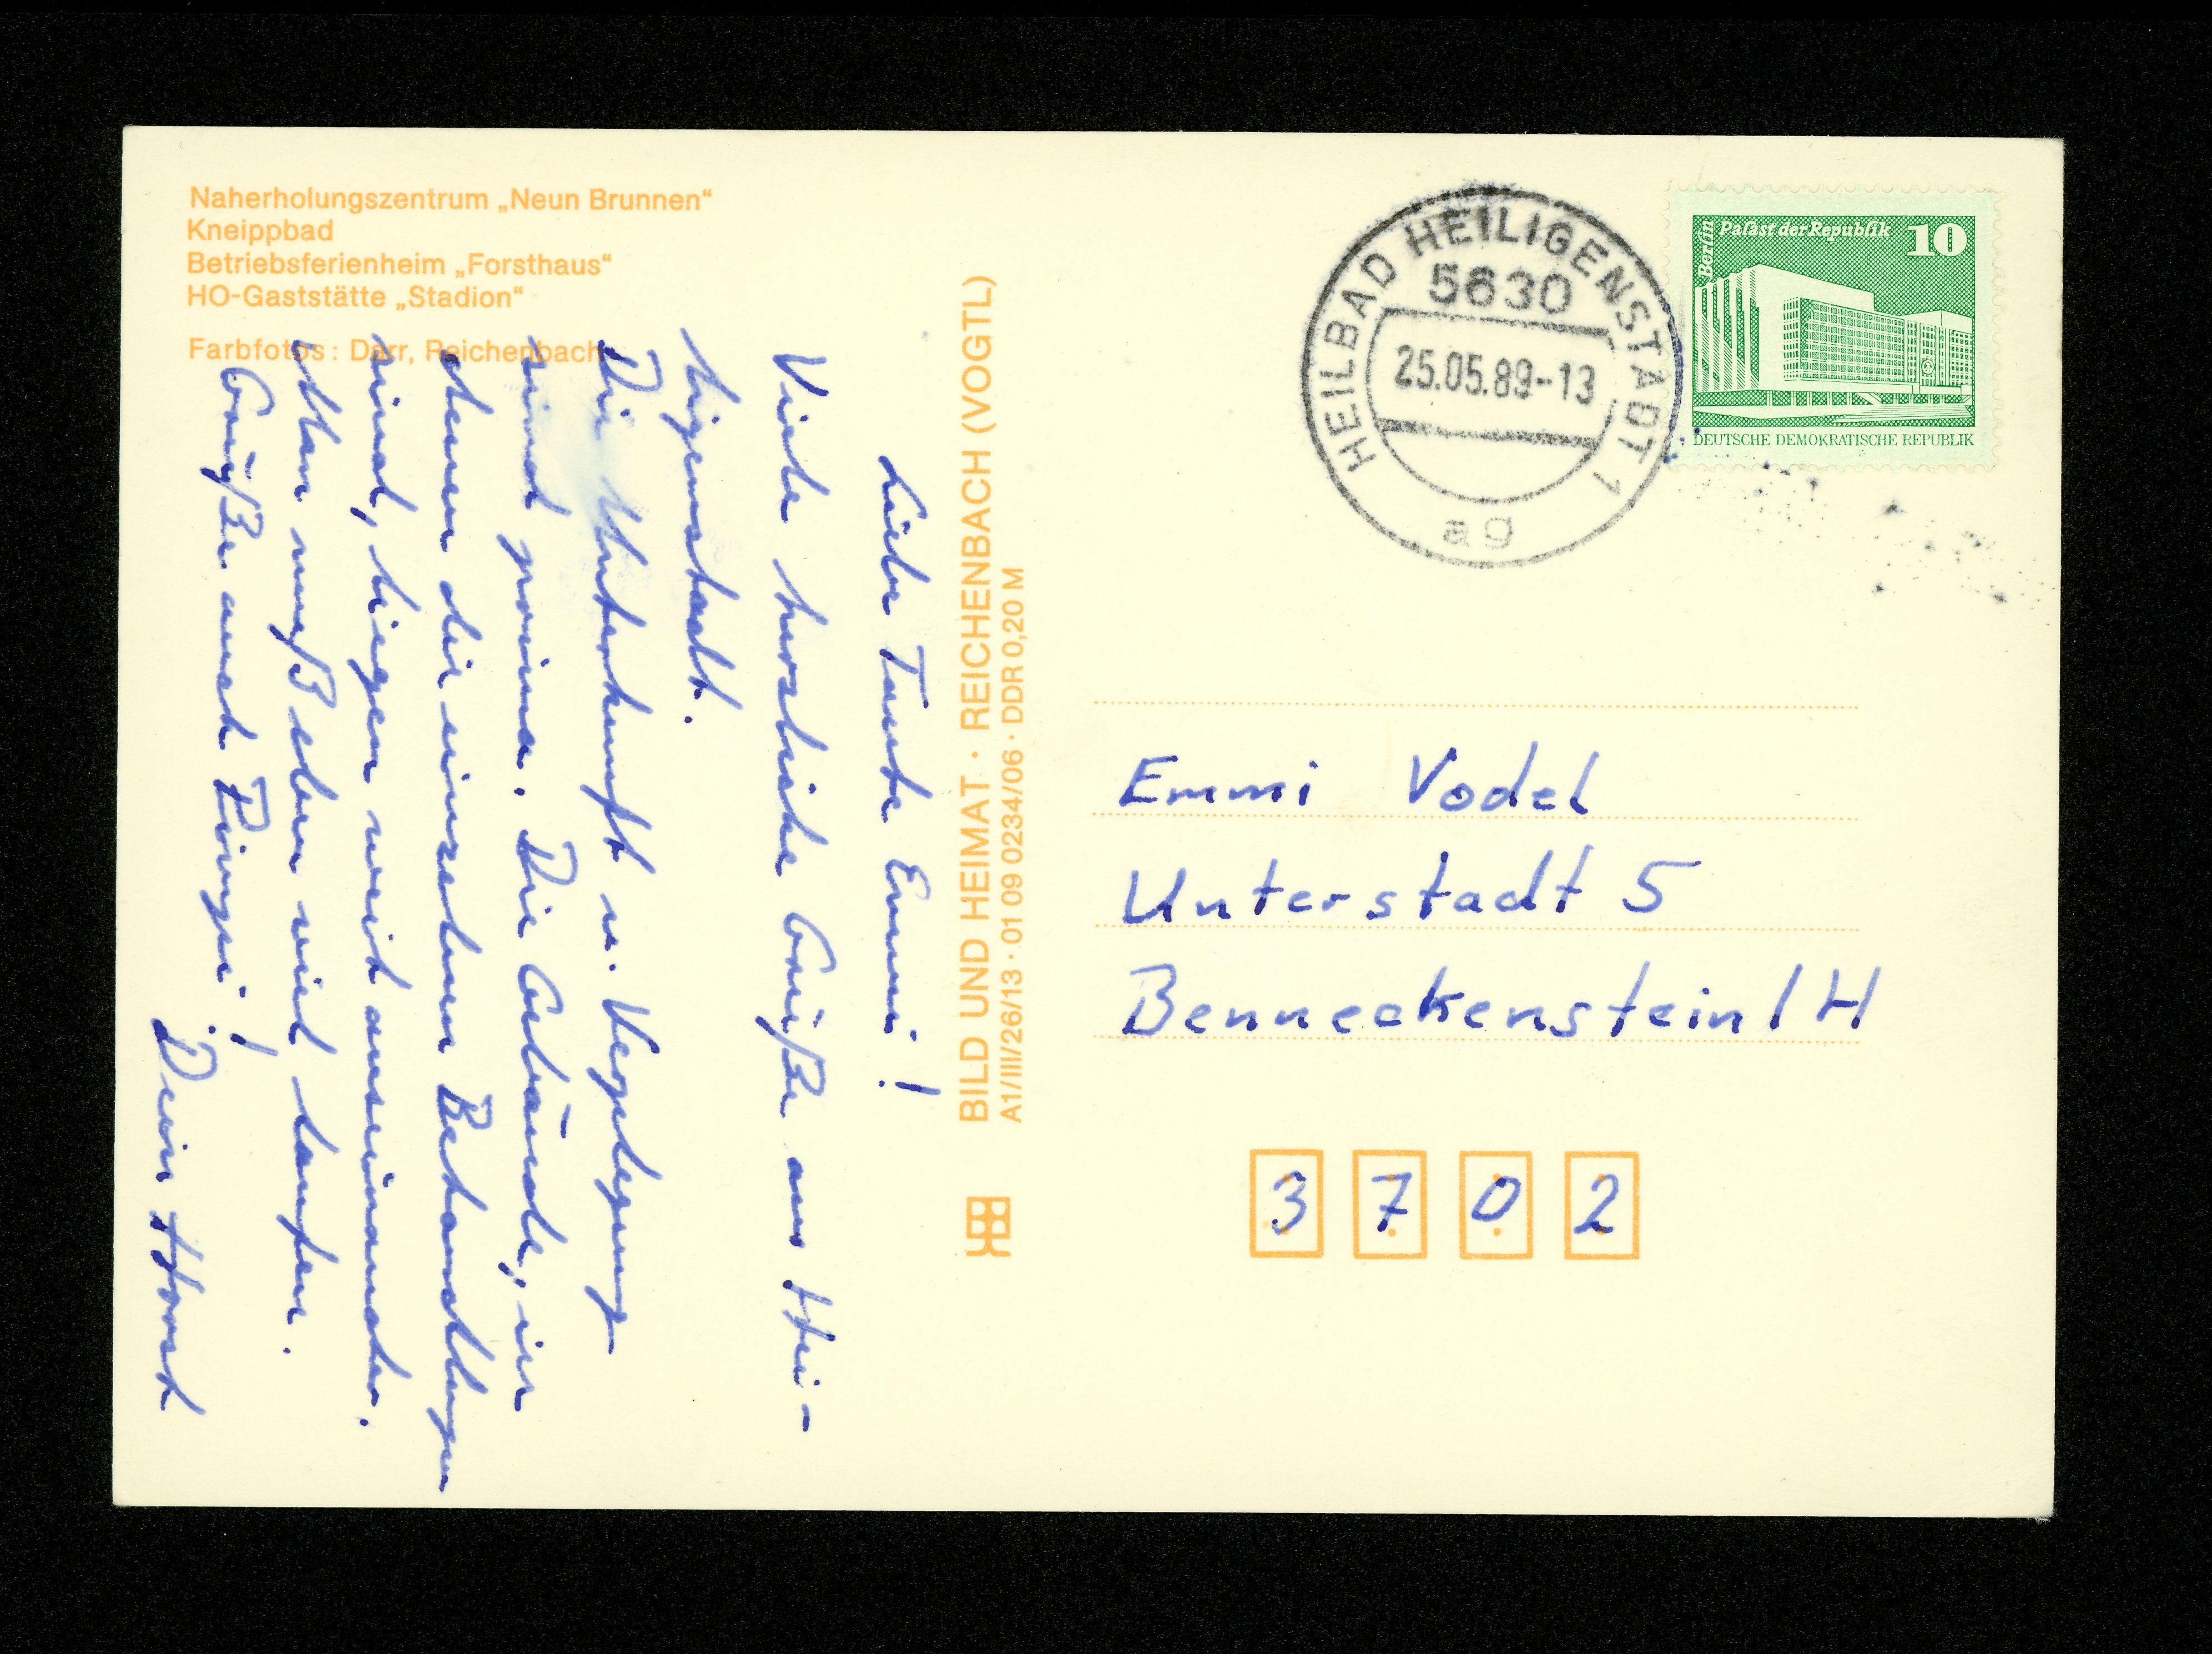 Naherholungszentrum „Neun Brunnen“
Kneippbad
Betriebsferienheim „Forsthaus“
HO-Gaststätte „Stadion“
Farbfotos: Darr, Reichenbach
Liebe Tante Emmi!
Viele herzliche Grüße aus Hei-
ligenstadt.
Die Unterkunft u. Verpflegung
sind prima. Die Gebäude, in
denen die einzelnen Behandlungen
sind, liegen weit auseinander.
Man muß eben viel laufen.
Grüße auch Püngsi!
Dein Horst
BILD UND HEIMAT · REICHENBACH (VOGTL)
A1/III/26/13 · 01 09 0234/06 · DDR 0,20 M
HEILBAD HEILIGENSTADT 1
5630
25.05.89--13
ag
Berlin
Palast der Republik 10
DEUTSCHE DEMOKRATISCHE REPUBLIK
Emmi Vodel
Unterstadt 5
Benneckenstein / H
3702